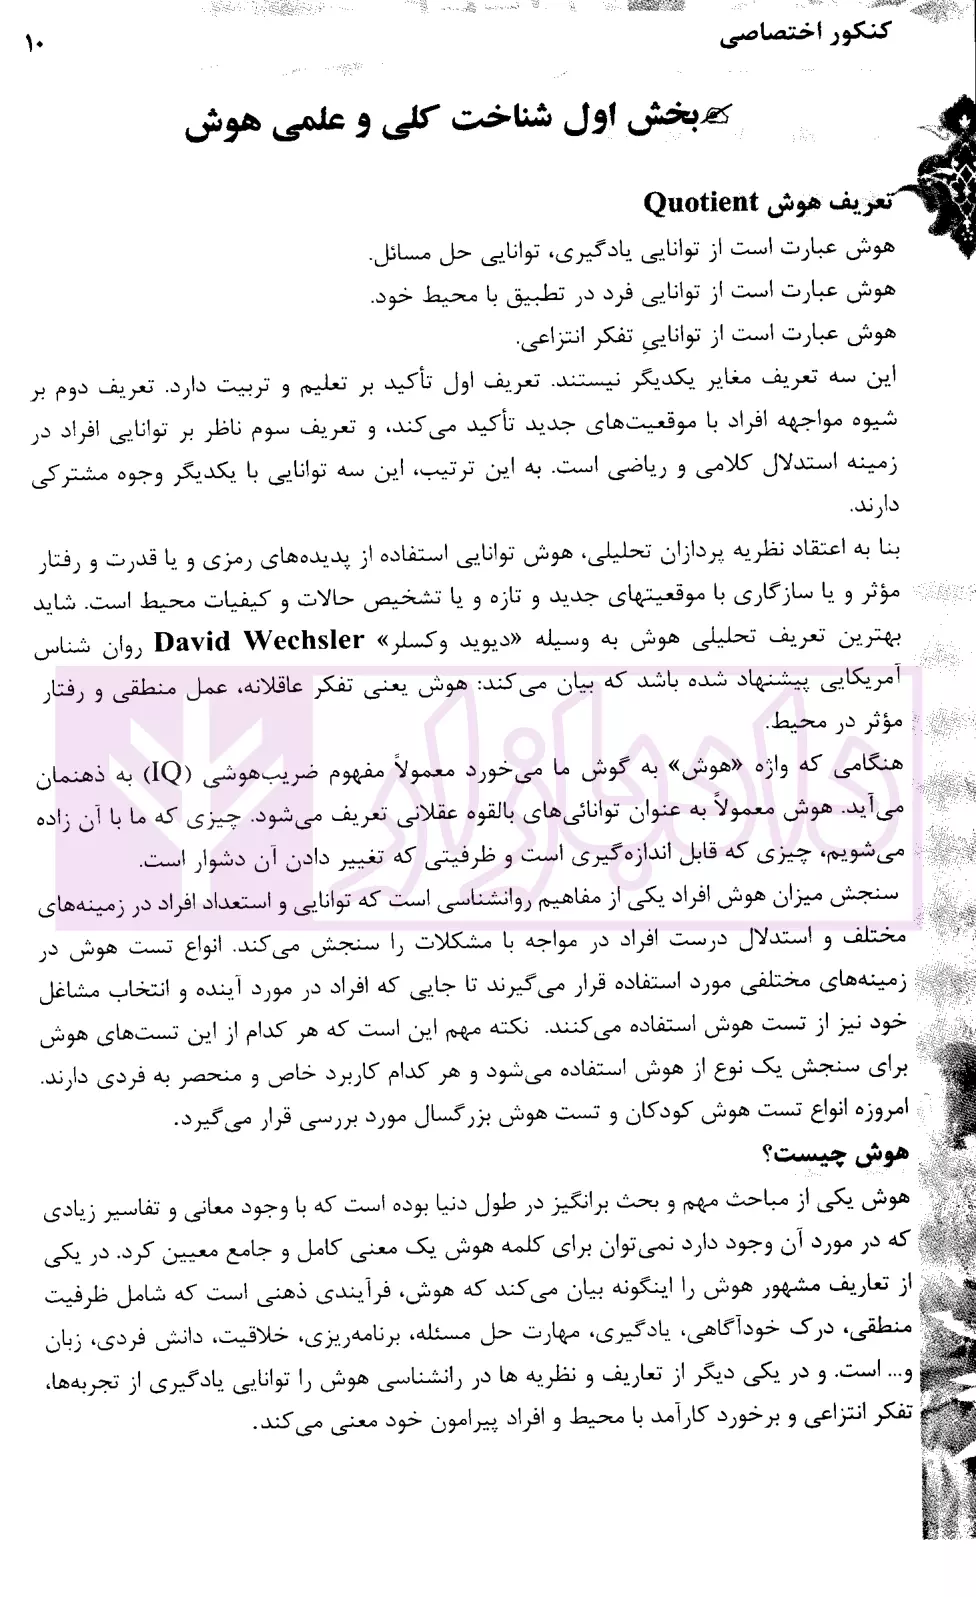 کنکور اختصاصی
۱۰
بخش اول شناخت کلی و علمی هوش
تعریف هوش Quotient
هوش عبارت است از توانایی یادگیری، توانایی حل مسائل.
هوش عبارت است از توانایی فرد در تطبیق با محیط خود.
هوش عبارت است از تواناییِ تفکر انتزاعی.
این سه تعریف مغایر یکدیگر نیستند. تعریف اول تأکید بر تعلیم و تربیت دارد. تعریف دوم بر
شیوه مواجهه افراد با موقعیت‌های جدید تأکید می‌کند، و تعریف سوم ناظر بر توانایی افراد در
زمینه استدلال کلامی و ریاضی است. به این ترتیب، این سه توانایی با یکدیگر وجوه مشترکی
دارند.
بنا به اعتقاد نظریه پردازان تحلیلی، هوش توانایی استفاده از پدیده‌های رمزی و یا قدرت و رفتار
مؤثر و یا سازگاری با موقعیتهای جدید و تازه و یا تشخیص حالات و کیفیات محیط است. شاید
بهترین تعریف تحلیلی هوش به وسیله «دیوید وکسلر» David Wechsler روان شناس
آمریکایی پیشنهاد شده باشد که بیان می‌کند: هوش یعنی تفکر عاقلانه، عمل منطقی و رفتار
مؤثر در محیط.
هنگامی که واژه «هوش» به گوش ما می‌خورد معمولاً مفهوم ضریب‌هوشی (IQ) به ذهنمان
می‌آید. هوش معمولاً به عنوان توانائی‌های بالقوه عقلانی تعریف می‌شود. چیزی که ما با آن زاده
می‌شویم، چیزی که قابل اندازه‌گیری است و ظرفیتی که تغییر دادن آن دشوار است.
سنجش میزان هوش افراد یکی از مفاهیم روانشناسی است که توانایی و استعداد افراد در زمینه‌های
مختلف و استدلال درست افراد در مواجه با مشکلات را سنجش می‌کند. انواع تست هوش در
زمینه‌های مختلفی مورد استفاده قرار می‌گیرند تا جایی که افراد در مورد آینده و انتخاب مشاغل
خود نیز از تست هوش استفاده می‌کنند. نکته مهم این است که هر کدام از این تست‌های هوش
برای سنجش یک نوع از هوش استفاده می‌شود و هر کدام کاربرد خاص و منحصر به فردی دارند.
امروزه انواع تست هوش کودکان و تست هوش بزرگسال مورد بررسی قرار می‌گیرد.
هوش چیست؟
هوش یکی از مباحث مهم و بحث برانگیز در طول دنیا بوده است که با وجود معانی و تفاسیر زیادی
که در مورد آن وجود دارد نمی‌توان برای کلمه هوش یک معنی کامل و جامع معیین کرد. در یکی
از تعاریف مشهور هوش را اینگونه بیان می‌کند که هوش، فرآیندی ذهنی است که شامل ظرفیت
منطقی، درک خودآگاهی، یادگیری، مهارت حل مسئله، برنامه‌ریزی، خلاقیت، دانش فردی، زبان
و... است. و در یکی دیگر از تعاریف و نظریه ها در رانشناسی هوش را توانایی یادگیری از تجربه‌ها،
تفکر انتزاعی و برخورد کارآمد با محیط و افراد پیرامون خود معنی می‌کند.
دادبازار